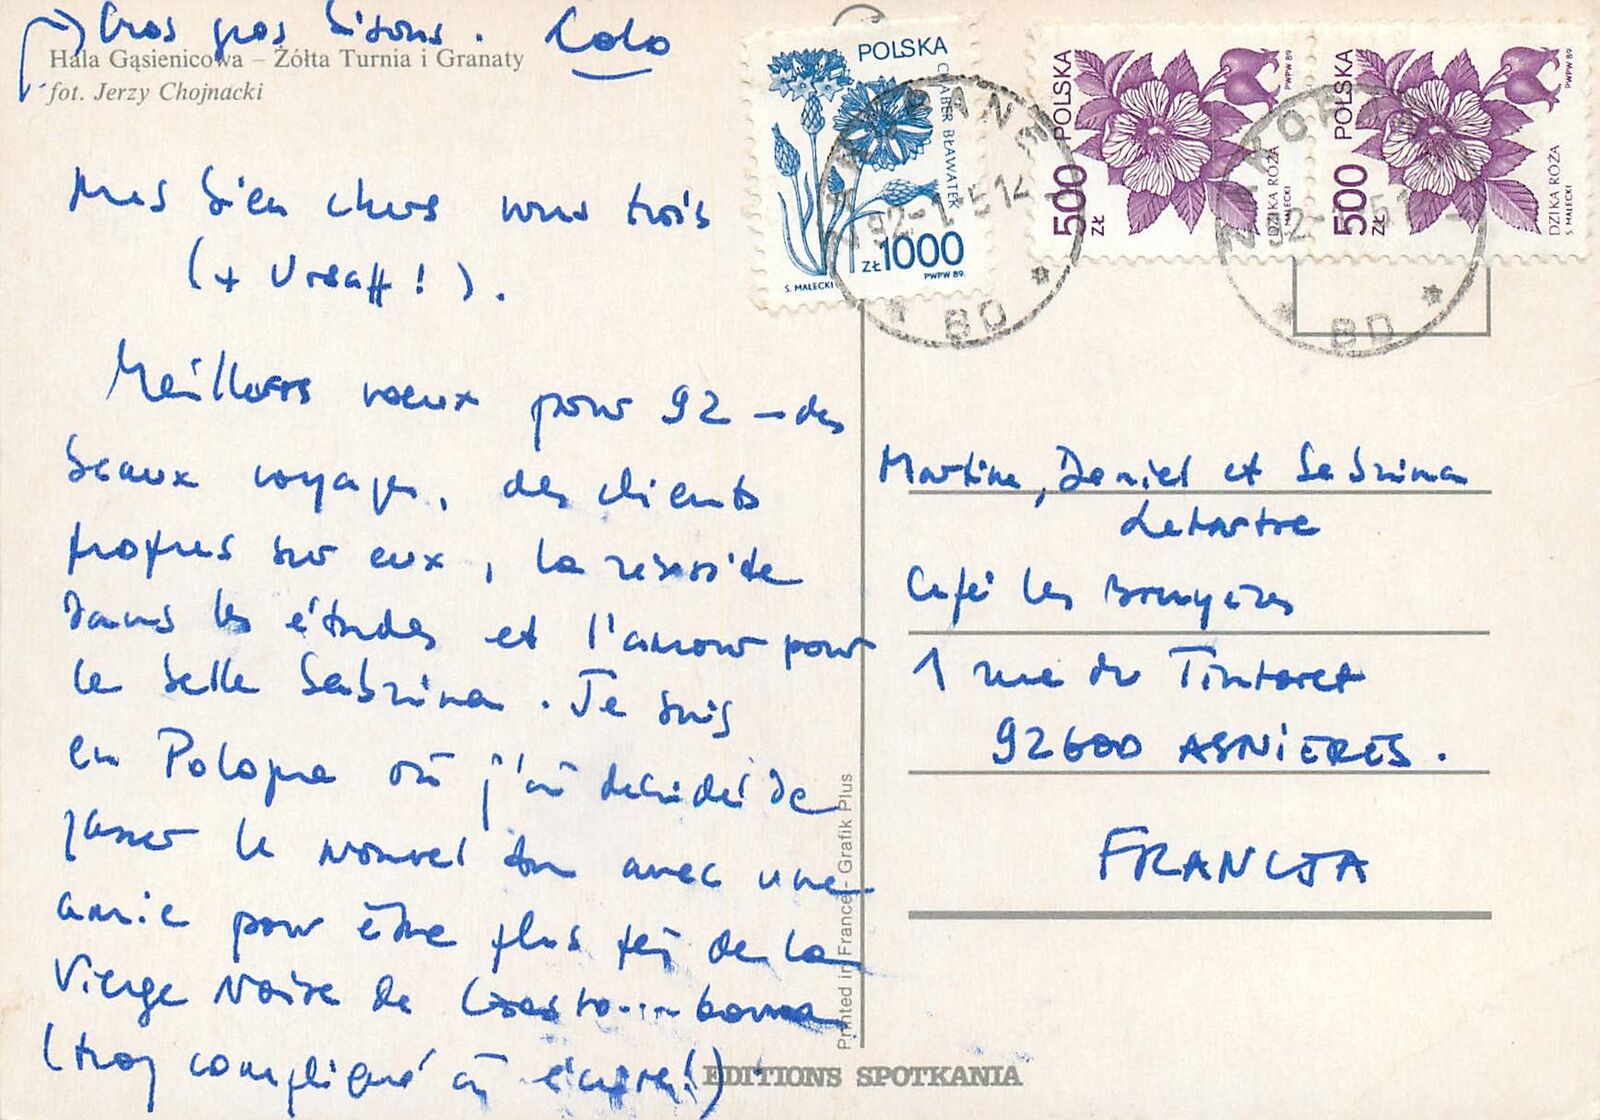 Gros gros bisous. Lolo
Hala Gąsienicowa – Żółta Turnia i Granaty
fot. Jerzy Chojnacki
Mes bien chers vous trois
(+ Urcaff !).
Meilleurs voeux pour 92 – des
beaux voyages, des clients
propres sur eux, la réussite
dans les études et l'amour pour
la belle Sabrina. Je suis
en Pologne où j'ai décidé de
passer le nouvel an avec une
amie pour être plus près de la
Vierge Noire de Czesto...
(trop compliqué à écrire!)
POLSKA
CHABER BŁAWATEK
ZŁ 1000
S. MAŁECKI
PWPW 89.
POLSKA
500 ZŁ
DZIKA RÓŻA
S. MAŁECKI
PWPW 89
POLSKA
500 ZŁ
DZIKA RÓŻA
S. MAŁECKI
PWPW 89
ZAKOPANE
92-1-
BD
ZAKOPANE
BD
Martine, Daniel et Sabrina
Letartre
Café les Bruyères
1 rue du Tintoret
92600 ASNIERES.
FRANCJA
Printed in France - Grafik Plus
EDITIONS SPOTKANIA